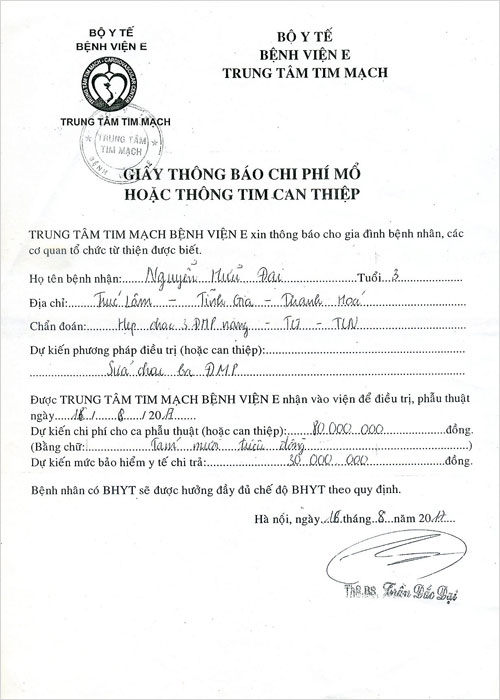 BỘ Y TẾ
BỆNH VIỆN E
TRUNG TÂM TIM MẠCH - CARDIOVASCULAR CENTER
TRUNG TÂM TIM MẠCH
BỘ Y TẾ
BỆNH VIỆN E
TRUNG TÂM TIM MẠCH
TRUNG TÂM
TIM MẠCH
GIẤY THÔNG BÁO CHI PHÍ MỔ
HOẶC THÔNG TIM CAN THIỆP
TRUNG TÂM TIM MẠCH BỆNH VIỆN E xin thông báo cho gia đình bệnh nhân, các
cơ quan tổ chức từ thiện được biết.
Họ tên bệnh nhân: Nguyễn Hữu Đại Tuổi 3
Địa chỉ: Trúc Lâm - Tĩnh Gia - Thanh Hoá
Chẩn đoán: Hẹp chạc 3 ĐMP nặng - TLT - TLN
Dự kiến phương pháp điều trị (hoặc can thiệp):
Sửa chạc ba ĐMP
Được TRUNG TÂM TIM MẠCH BỆNH VIỆN E nhận vào viện để điều trị, phẫu thuật
ngày 16 / 8 / 2017
Dự kiến chi phí cho ca phẫu thuật (hoặc can thiệp): 80.000 000 đồng.
(Bằng chữ: Tám mươi triệu đồng )
Dự kiến mức bảo hiểm y tế chi trả: 30 000 000 đồng.
Bệnh nhân có BHYT sẽ được hưởng đầy đủ chế độ BHYT theo quy định.
Hà nội, ngày 16 tháng 8 năm 2017
ThS.BS Trần Đắc Đại